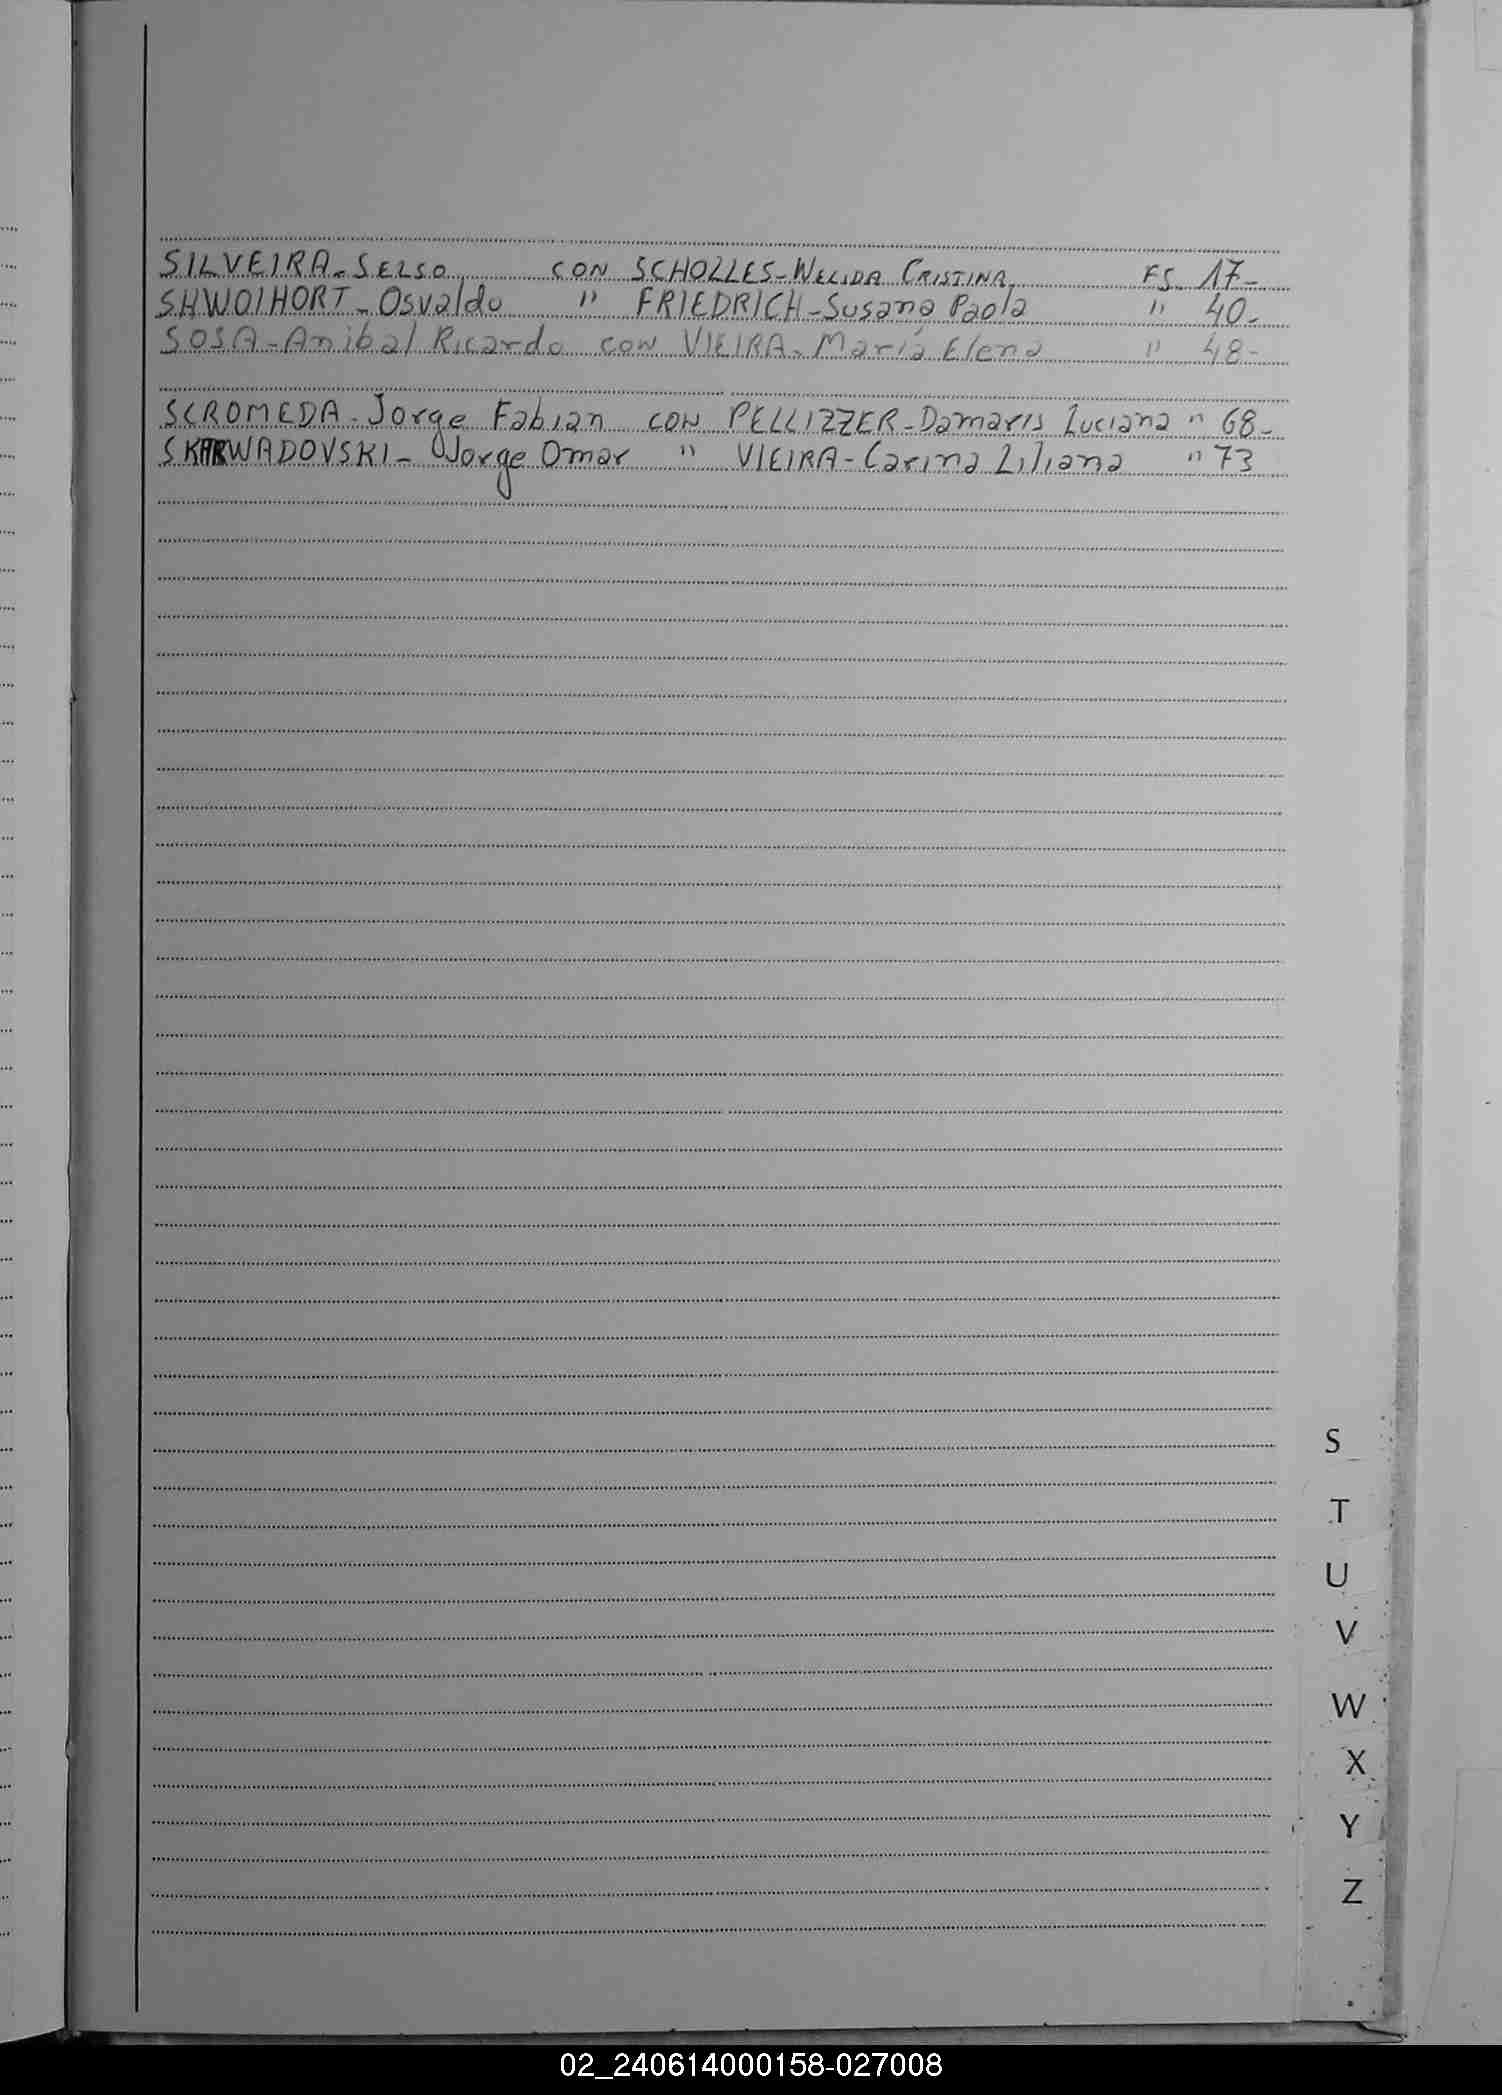 SILVEIRA - SELSO CON SCHOLLES - WELIDA CRISTINA FS. 17 -
SHWOIHORT - Osvaldo " FRIEDRICH - Susana Paola " 40 -
SOSA - Anibal Ricardo con VIEIRA - María Elena " 48 -
SCROMEDA - Jorge Fabian CON PELLIZZER - Damaris Luciana " 68 -
SKARWADOVSKI - Jorge Omar " VIEIRA - Carina Liliana " 73
S
T
U
V
W
X
Y
Z
02_240614000158-027008